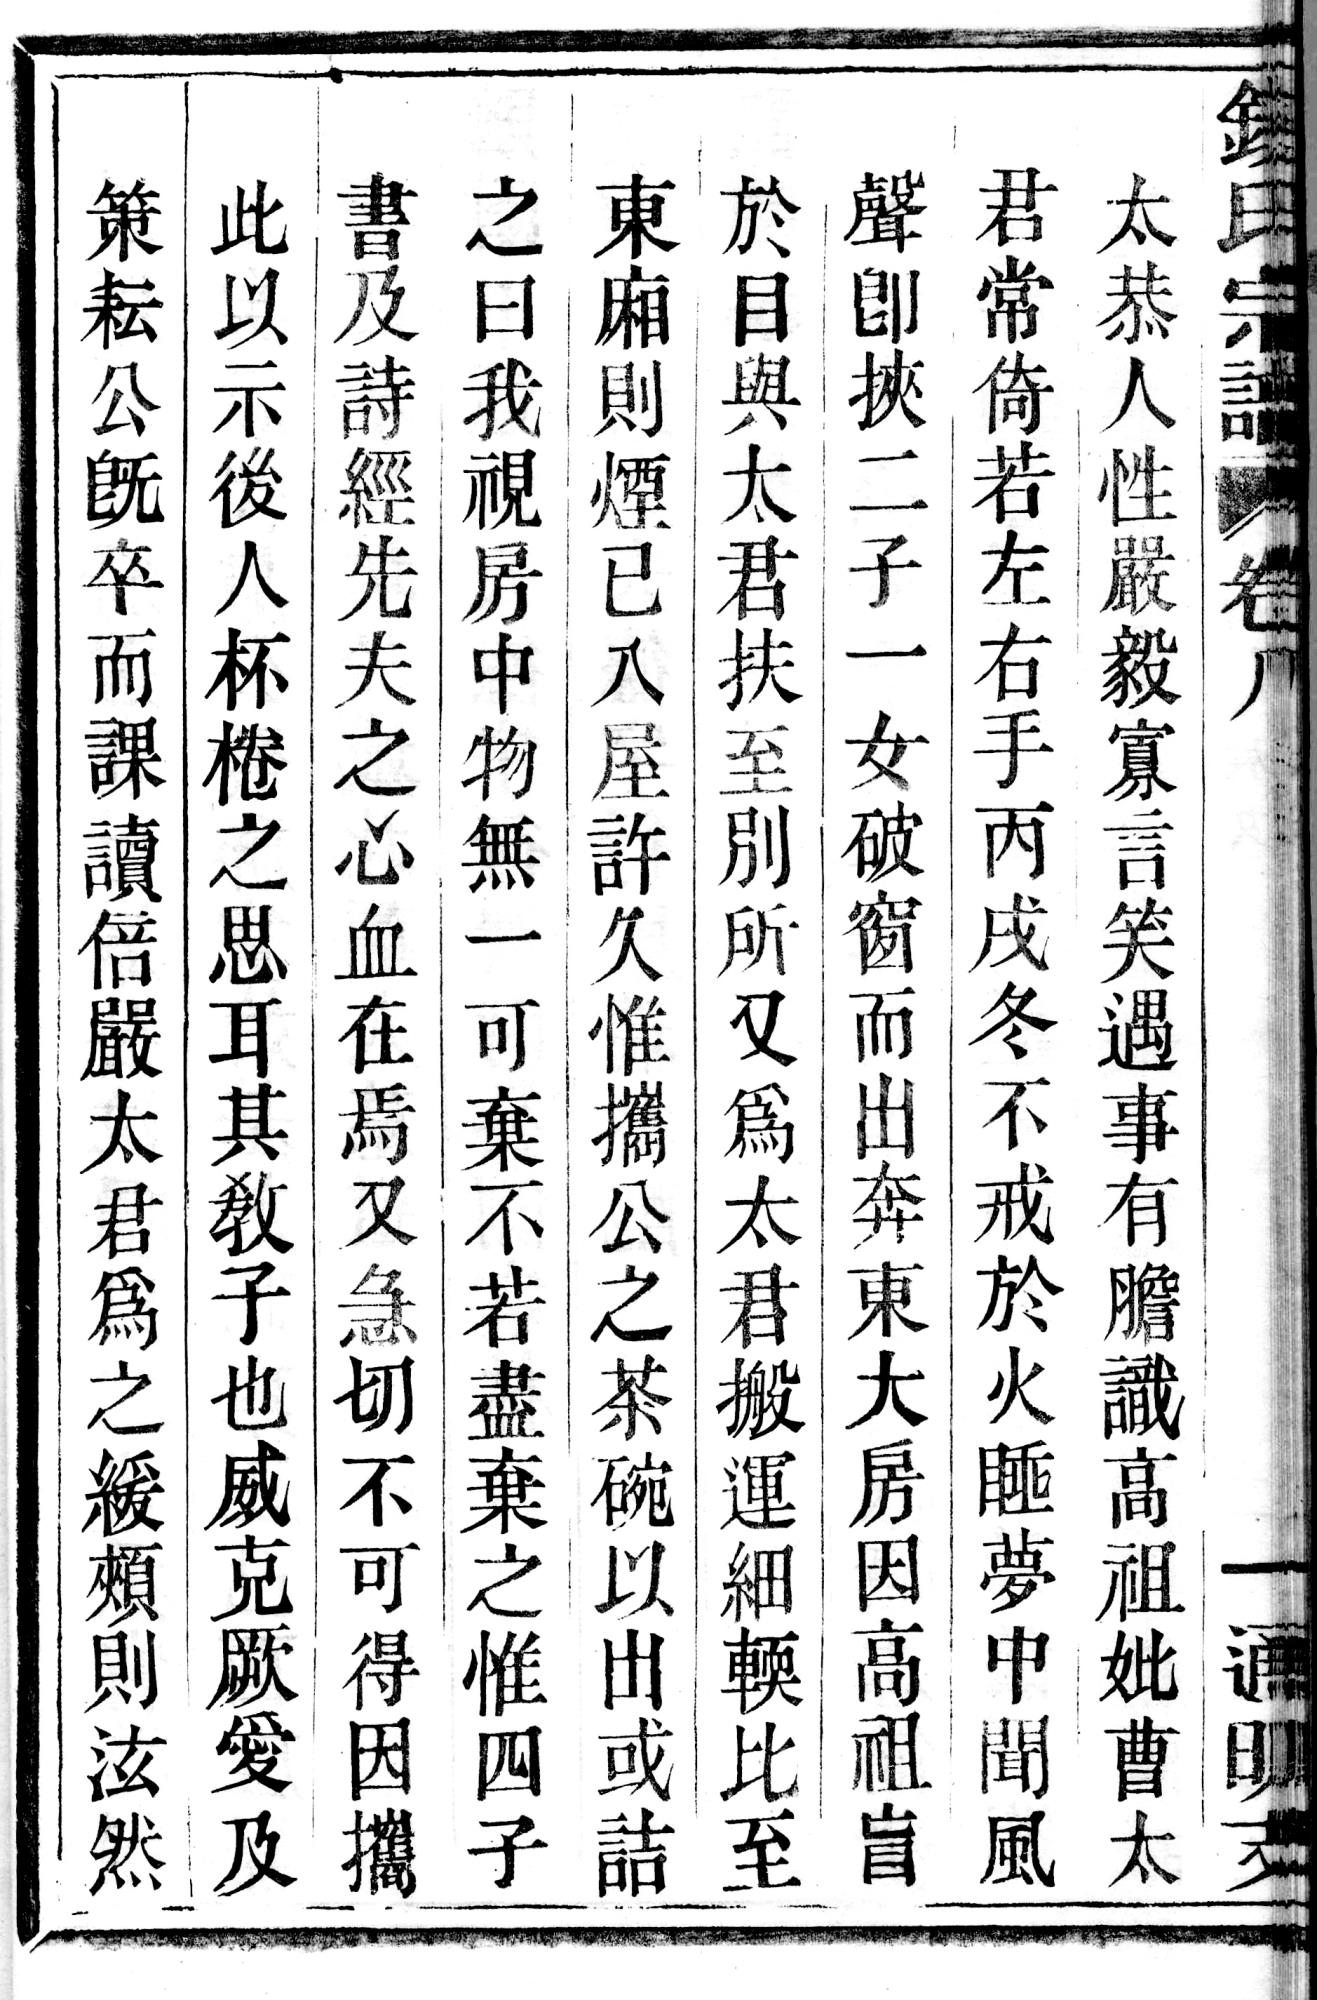 錢氏宗譜 卷八 一 通明支
太恭人性嚴毅寡言笑遇事有膽識高祖妣曹太
君常倚若左右手丙戌冬不戒於火睡夢中聞風
聲卽挾二子一女破窗而出奔東大房因高祖盲
於目與太君扶至別所又爲太君搬運細輭比至
東廂則煙已入屋許久惟攜公之茶碗以出或詰
之曰我視房中物無一可棄不若盡棄之惟四子
書及詩經先夫之心血在焉又急切不可得因攜
此以示後人杯棬之思耳其敎子也威克厥愛及
策耘公旣卒而課讀倍嚴太君爲之緩頰則泫然